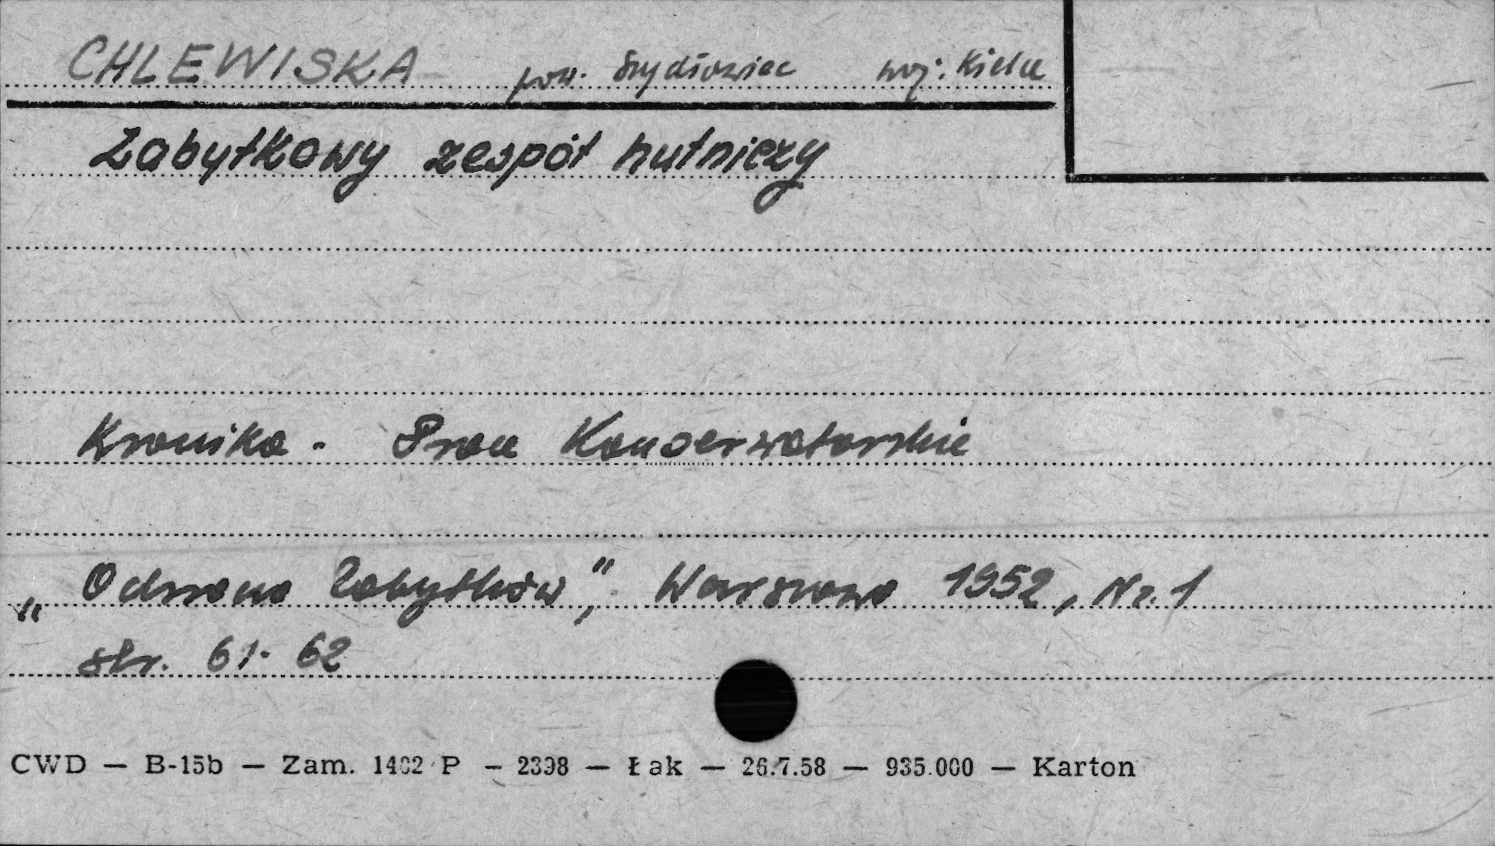 CHLEWISKA pow. Szydłowiec woj. Kielce
Zabytkowy zespół hutniczy
Kronika - Prace Konserwatorskie
„Ochrona Zabytków”, Warszawa 1952, Nr. 1
str. 61-62
CWD — B-15b — Zam. 1402 P — 2398 — Łak — 26.7.58 — 935.000 — Karton